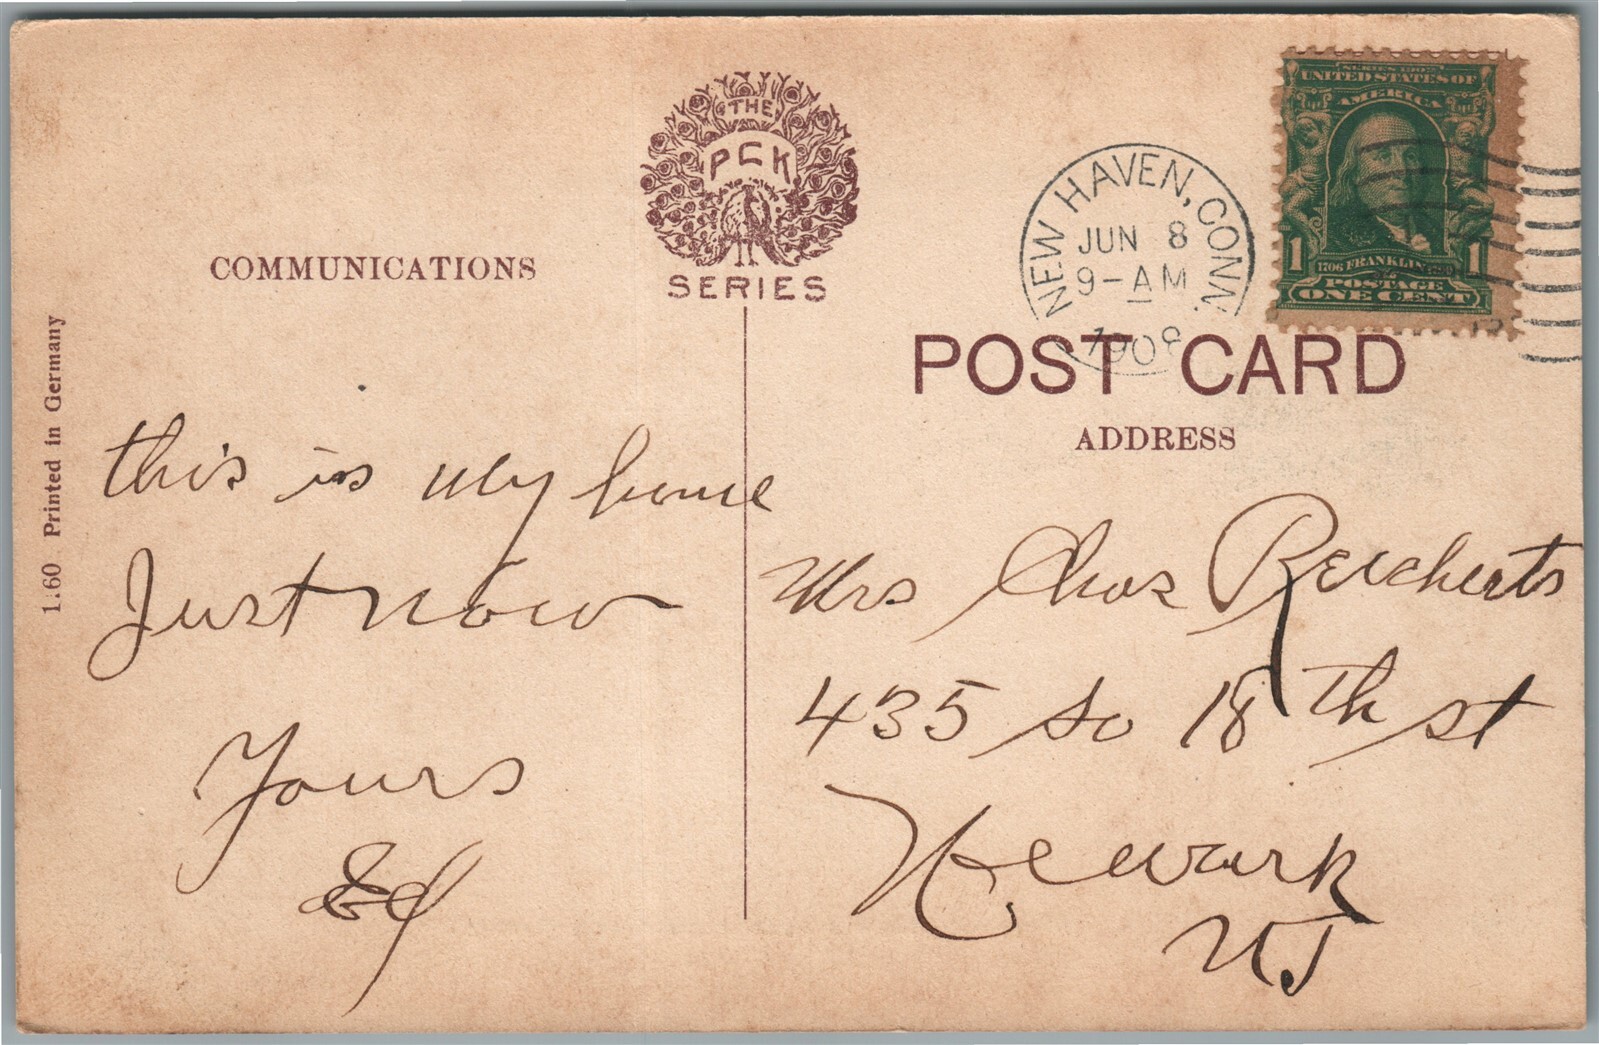 COMMUNICATIONS
THE
PCK
SERIES
1.60 Printed in Germany
this is my home
Just now
Yours
Ed
NEW HAVEN, CONN.
JUN 8
9-AM
1908
SERIES 1902
UNITED STATES OF
AMERICA
1 1
1706 FRANKLIN 1790
POSTAGE
ONE CENT
POST CARD
ADDRESS
Mrs Chas Reicherts
435 So 18th st
Newark
NJ